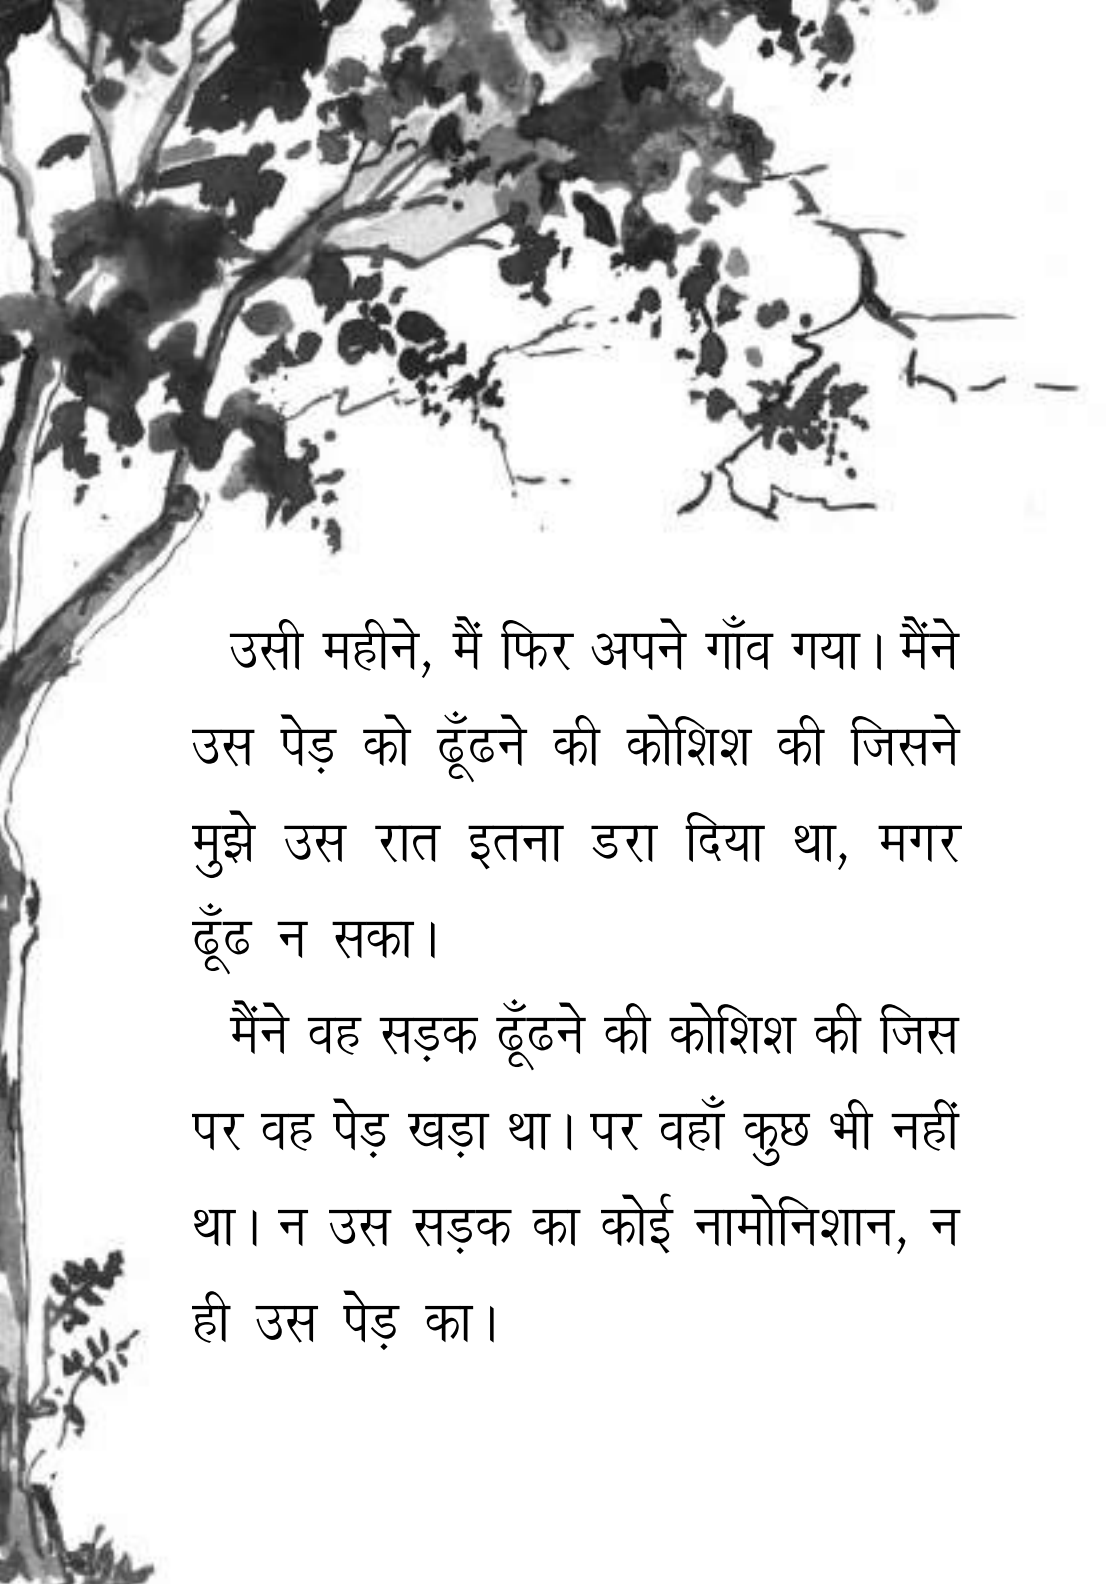 उसी महीने, मैं फिर अपने गाँव गया। मैंने
उस पेड़ को ढूँढने की कोशिश की जिसने
मुझे उस रात इतना डरा दिया था, मगर
ढूँढ न सका।
मैंने वह सड़क ढूँढने की कोशिश की जिस
पर वह पेड़ खड़ा था। पर वहाँ कुछ भी नहीं
था। न उस सड़क का कोई नामोनिशान, न
ही उस पेड़ का।